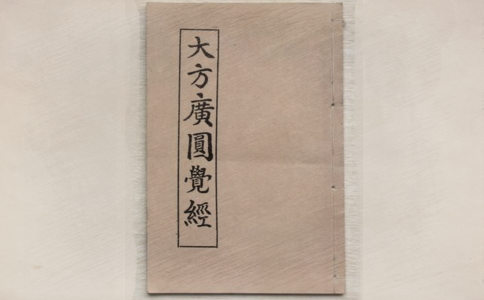 大方廣圓覺經